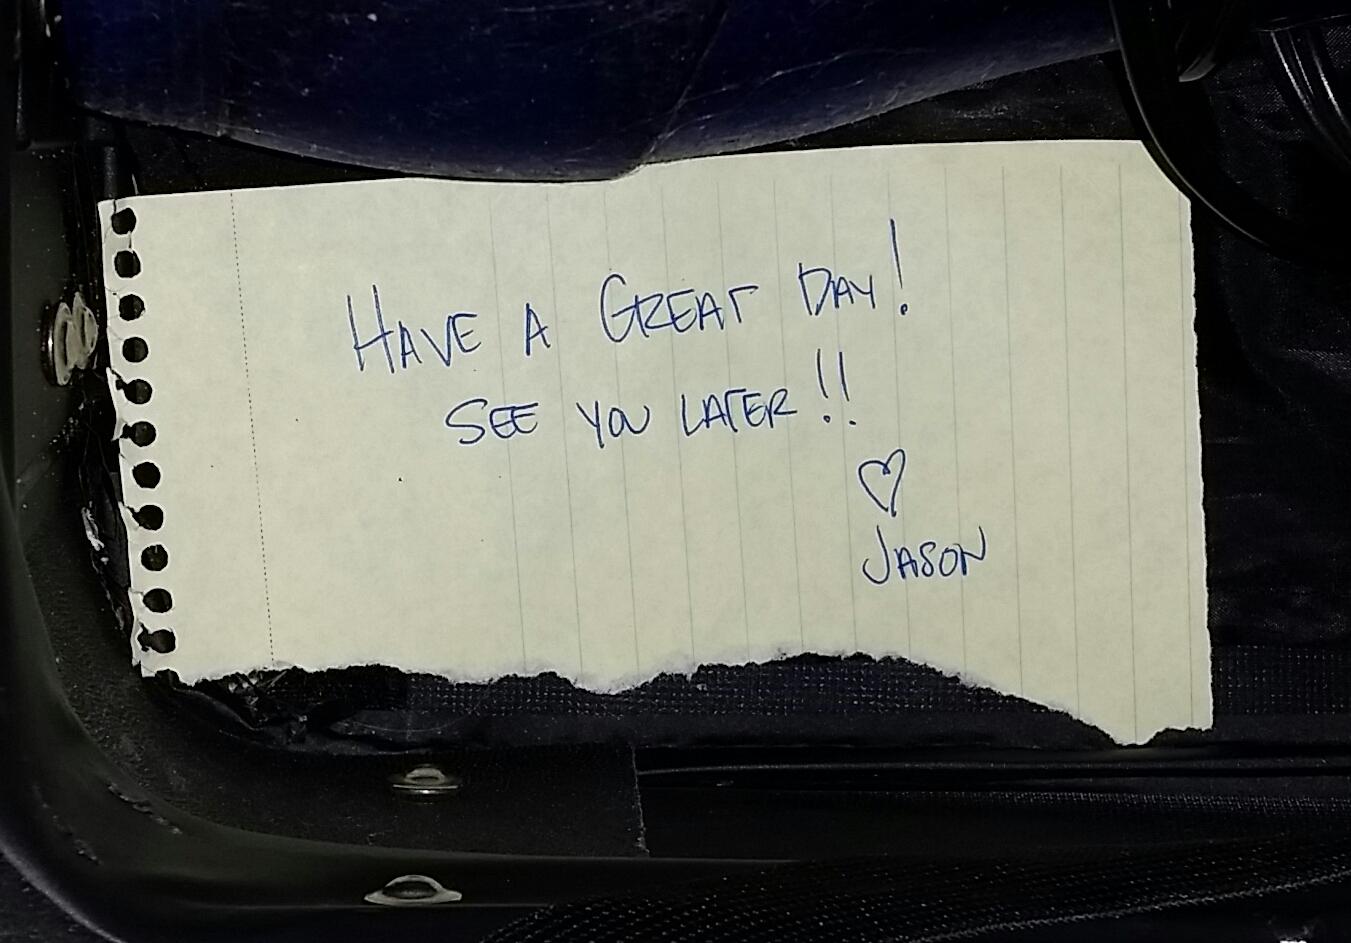 HAVE A GREAT DAY!
SEE YOU LATER!!
♡
JASON